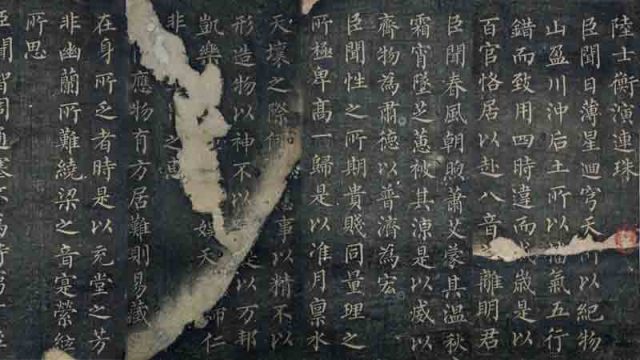 陸士衡演連珠
臣聞日薄星迴穹天所以紀物
山盈川沖后土所以播氣五行
錯而致用四時違而成歲是以
百官恪居以赴八音離明君
臣聞春風朝煦蕭艾蒙其温秋
霜宵墜芝蕙被其涼是以威以
齊物為肅德以普濟為宏
臣聞性之所期貴賤同量理之
所極卑高一歸是以准月稟水
天壤之際何事以精不以
形造物以神不以是以万邦
凱樂娛天沛仁
非之
應物有方居難則易藏
在身所乏者時是以充堂之芳
非幽蘭所難繞梁之音寔縈絃
所思
臣聞智周通塞不為時窮